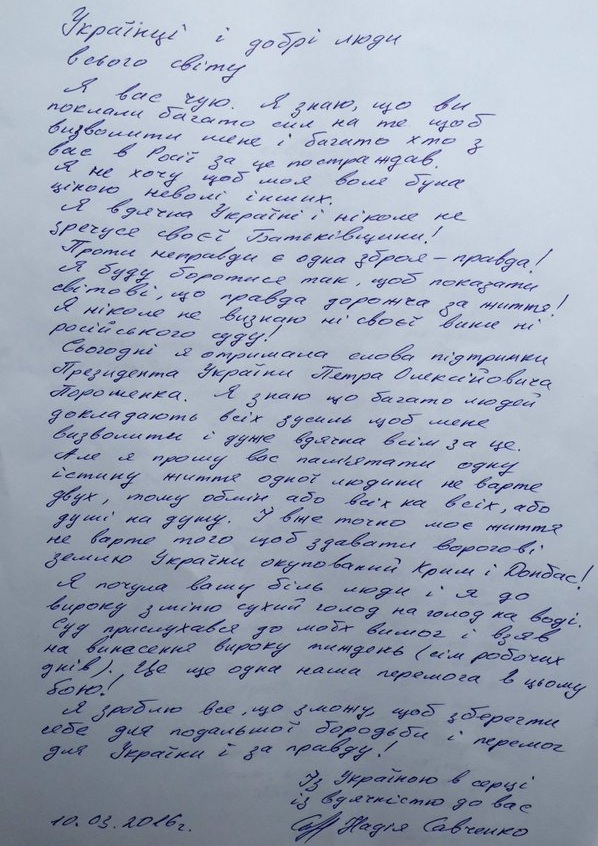 Українці і добрі люди
всього світу
Я вас чую. Я знаю, що ви
поклали багато сил на те щоб
визволити мене і багато хто з
вас в Росії за це постраждав.
Я не хочу щоб моя воля була
ціною неволі інших.
Я вдячна Україні і ніколе не
зречуся своєї Батьківщини!
Проти неправди є одна зброя – правда!
Я буду боротися так, щоб показати
світові, що правда дорожча за життя!
Я ніколе не визнаю ні своєї вини ні
російського суду!
Сьогодні я отримала слова підтринки
Президента України Петра Олексійовича
Порошенка. Я знаю що багато людей
докладають всіх зусиль щоб мене
визволити і дуже вдячна всім за це.
Але я прошу вас пам'ятати одну
істину життя одної людини не варте
двух, тому обмін або всіх на всіх, або
душі на душу. І вже точно моє життя
не варте того щоб здавати ворогові
землю України окупований Крим і Донбас!
Я почула вашу біль люди і я до
вироку змінію сухий голод на голод на воді.
Суд прислухався до моїх вимог і взяв
на винасення вироку тиждень (сім робочих
днів). Це ще одна наша перемога в цьому
бою!
Я зроблю все, що зможу, щоб зберегти
себе для подальшої бородьби і перемог
для України і за правду!
Із Україною в серці
із вдячністю до вас
10.03.2016г. Надія Савченко